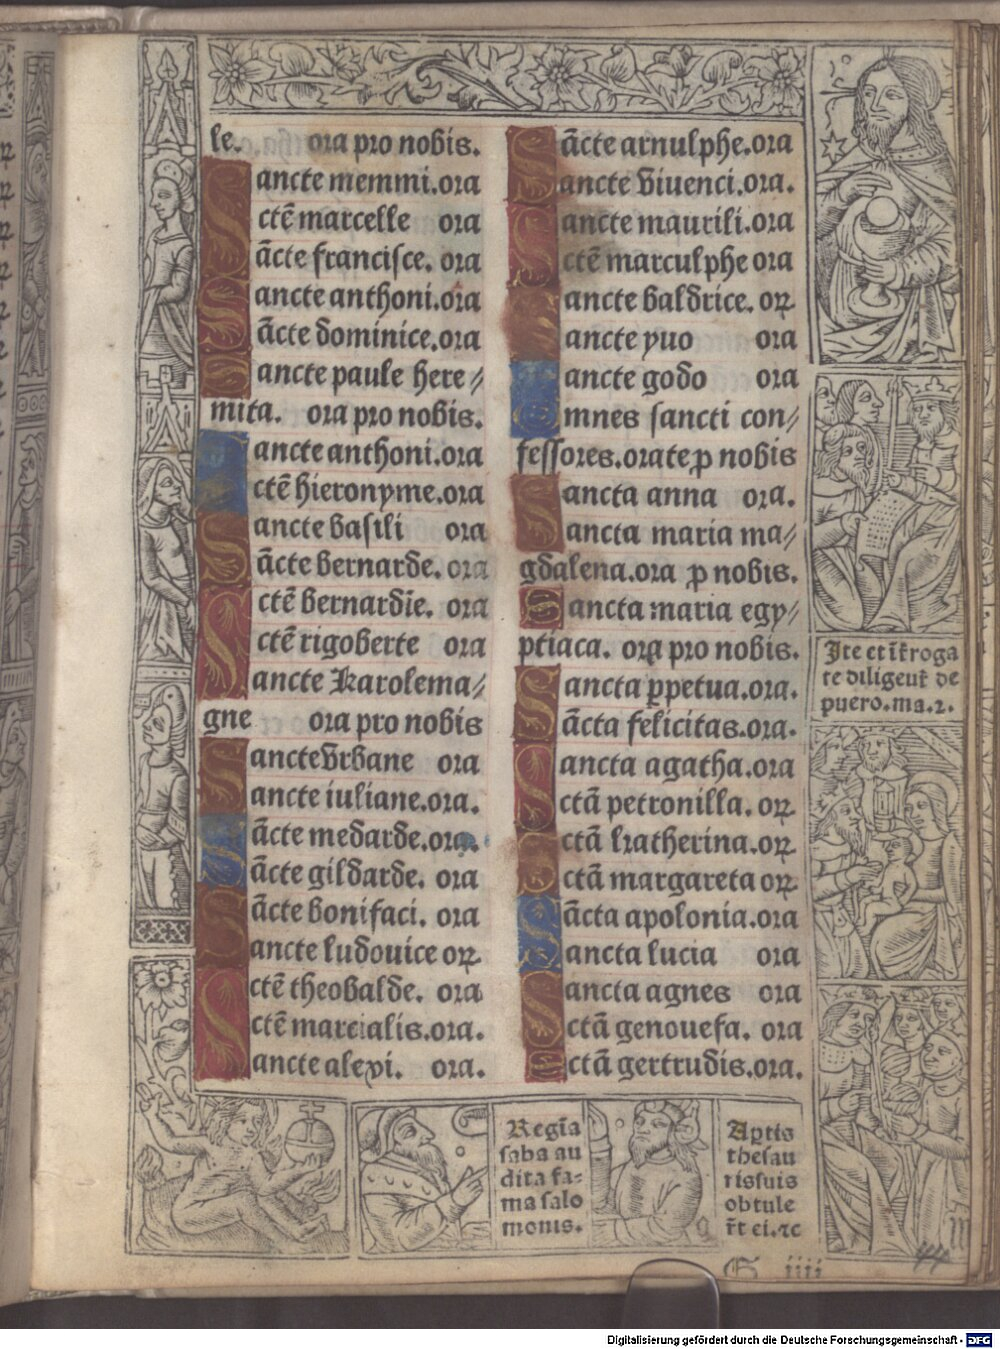 le. ora pro nobis.
Sancte memmi.ora
Sctē marcelle ora
Sācte francisce. ora
Sancte anthoni.ora
Sācte dominice.ora
Sancte paule here⸗
mita. ora pro nobis.
Sancte anthoni.ora
Sctē hieronyme.ora
Sancte basili ora
Sācte bernarde. ora
Sctē bernardīe. ora
Sctē rigoberte ora
Sancte Karolema⸗
gne ora pro nobis
Sancte vrbane ora
Sancte iuliane.ora.
Sācte medarde.ora.
Sācte gildarde. ora
Sācte bonifaci. ora
Sancte ludouice oꝝ
Sctē theobalde. ora
Sctē marcialis.ora.
Sancte alexi. ora.
Sācte arnulphe.ora
Sancte viuenci.ora.
Sancte maurili.ora
Sctē marculphe ora
Sancte baldrice. oꝝ
Sancte yuo ora
Sancte godo ora
Omnes sancti con⸗
fessores.orate ꝓ nobis
Sancta anna ora.
Sancta maria ma⸗
gdalena.ora ꝓ nobis.
Sancta maria egy⸗
ptiaca. ora pro nobis.
Sancta ꝑpetua.ora.
Sācta felicitas.ora.
Sancta agatha.ora
Sctā petronilla. oꝝ
Sctā katherina.oꝝ
Sctā margareta oꝝ
Sācta apolonia.ora
Sancta lucia ora
Sancta agnes ora
Sctā genouefa. ora
Sctā gertrudis.ora.
Ite et īt̄roga
te diligent̄ de
puero.ma.2.
Regīa
saba au
dita fa-
ma salo
monis.
Aꝑtis
thesau
ris suis
obtule
rt̄ ei.⁊c
G iiii
44
Digitalisierung gefördert durch die Deutsche Forschungsgemeinschaft - DFG